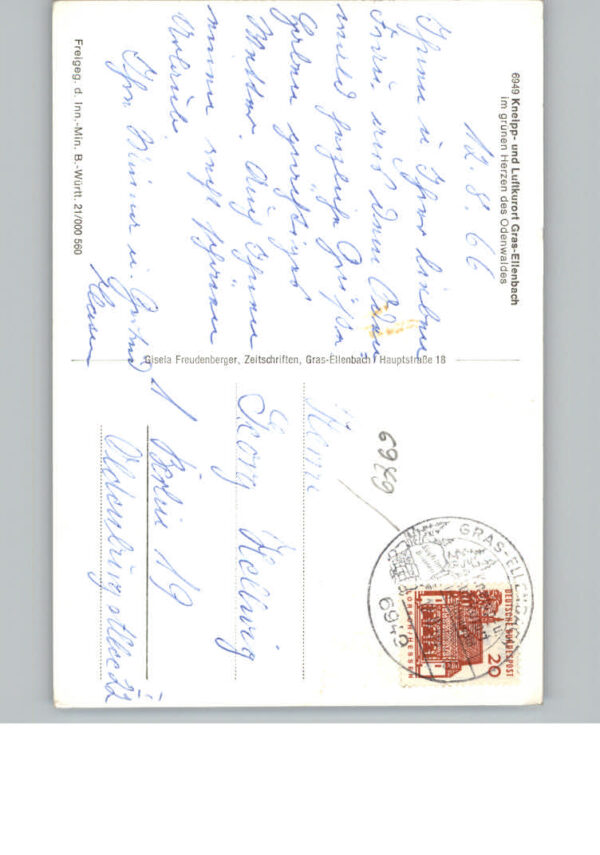 6949 Kneipp- und Luftkurort Gras-Ellenbach
im grünen Herzen des Odenwaldes
12.8.66
Ihnen u. Ihrer lieben
Frau aus dem Oden-
wald herzliche Grüße
Haben
Wetter. Auch Ihnen
einen recht schönen
Urlaub.
Ihr
Freigeg. d. Inn.-Min. B.-Württ. 21/000 560
Gisela Freudenberger, Zeitschriften, Gras-Ellenbach / Hauptstraße 18
6949
Herrn
Georg Hellwig
1 Berlin 19
GRAS-ELLENBACH
6949
DEUTSCHE BUNDESPOST
20
LORSCH/HESSEN